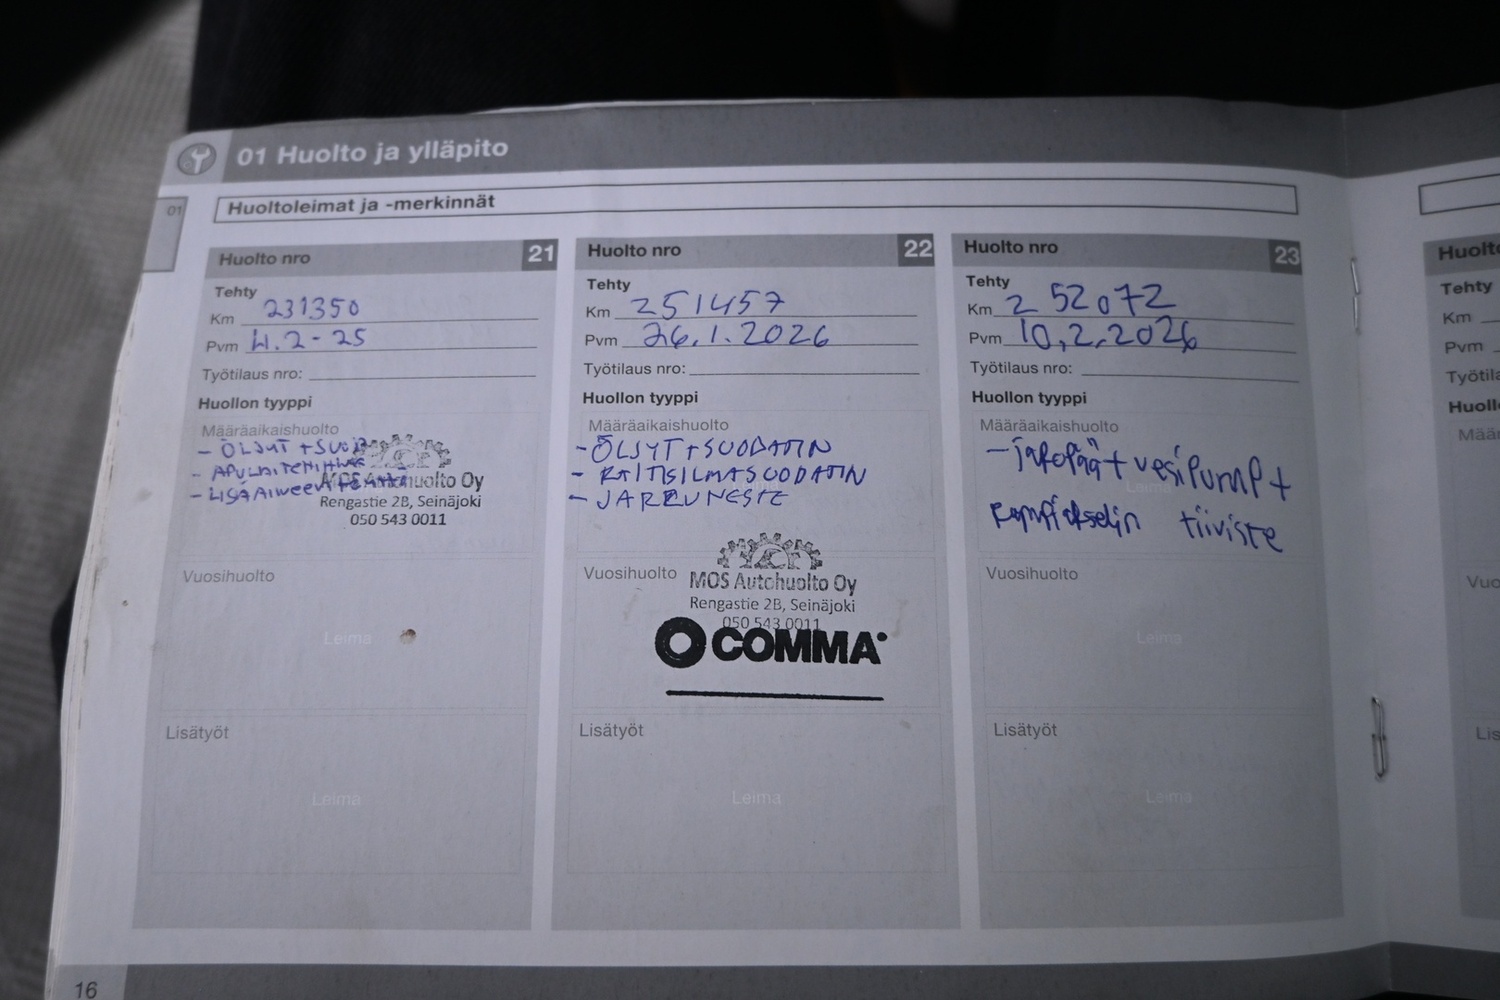 01 Huolto ja ylläpito
01
Huoltoleimat ja -merkinnät
Huolto nro 21
Tehty
Km 231350
Pvm 4.2-25
Työtilaus nro:
Huollon tyyppi
Määräaikaishuolto
- ÖLJYT + SUOD
-
- LISÄAINEEN
MOS Autohuolto Oy
Rengastie 2B, Seinäjoki
050 543 0011
Vuosihuolto
Leima
Lisätyöt
Leima
Huolto nro 22
Tehty
Km 251457
Pvm 26.1.2026
Työtilaus nro:
Huollon tyyppi
Määräaikaishuolto
- ÖLJYT + SUODATIN
- RAITISILMASUODATIN
- JARRUNESTE
Vuosihuolto
MOS Autohuolto Oy
Rengastie 2B, Seinäjoki
050 543 0011
COMMA
Lisätyöt
Leima
Huolto nro 23
Tehty
Km 252072
Pvm 10.2.2026
Työtilaus nro:
Huollon tyyppi
Määräaikaishuolto
- jakopää + vesipump +
tiiviste
Leima
Vuosihuolto
Leima
Lisätyöt
Leima
Tehty
Km
Pvm
16